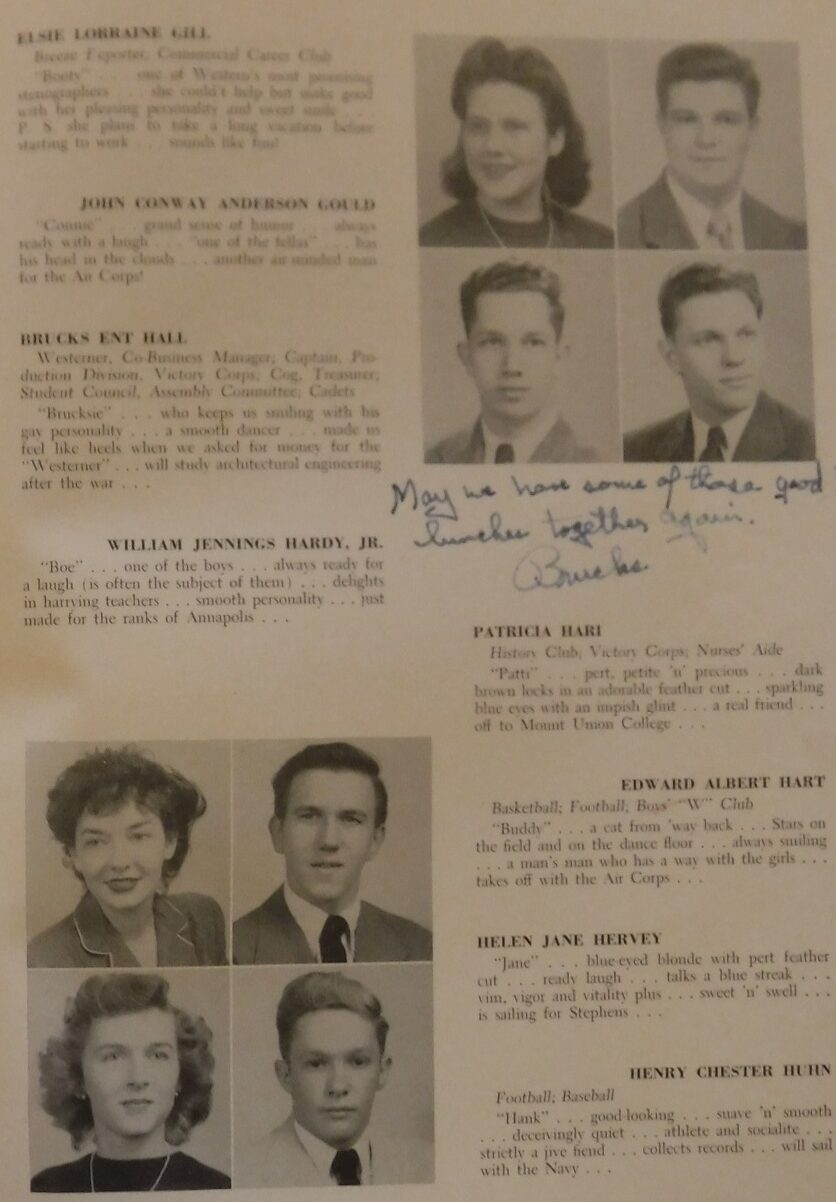 ELSIE LORRAINE GILL
Breeze Reporter, Commercial Career Club
"Booty" . . . one of Western's most promising
stenographers . . . she could't help but make good
with her pleasing personality and sweet smile . . .
P. S. she plans to take a long vacation before
starting to work . . . sounds like fun!
JOHN CONWAY ANDERSON GOULD
"Connie" . . . grand sense of humor . . . always
ready with a laugh . . . "one of the fellas" . . . has
his head in the clouds . . . another air-minded man
for the Air Corps!
BRUCKS ENT HALL
Westerner, Co-Business Manager; Captain, Pro-
duction Division, Victory Corps; Cog, Treasurer;
Student Council, Assembly Committee; Cadets
"Brucksie" . . . who keeps us smiling with his
gay personality . . . a smooth dancer . . . made us
feel like heels when we asked for money for the
"Westerner" . . . will study architectural engineering
after the war . . .
WILLIAM JENNINGS HARDY, JR.
"Boe" . . . one of the boys . . . always ready for
a laugh (is often the subject of them) . . . delights
in harrying teachers . . . smooth personality . . . just
made for the ranks of Annapolis . . .
May we have some of those good
lunches together again.
Brucks
PATRICIA HARI
History Club; Victory Corps; Nurses' Aide
"Patti" . . . pert, petite 'n' precious . . . dark
brown locks in an adorable feather cut . . . sparkling
blue eyes with an impish glint . . . a real friend . . .
off to Mount Union College . . .
EDWARD ALBERT HART
Basketball; Football; Boys' "W" Club
"Buddy" . . . a cat from 'way back . . . Stars on
the field and on the dance floor . . . always smiling
. . . a man's man who has a way with the girls . . .
takes off with the Air Corps . . .
HELEN JANE HERVEY
"Jane" . . . blue-eyed blonde with pert feather
cut . . . ready laugh . . . talks a blue streak . . .
vim, vigor and vitality plus . . . sweet 'n' swell . . .
is sailing for Stephens . . .
HENRY CHESTER HUHN
Football; Baseball
"Hank" . . . good-looking . . . suave 'n' smooth
. . . deceivingly quiet . . . athlete and socialite . . .
strictly a jive fiend . . . collects records . . . will sail
with the Navy . . .